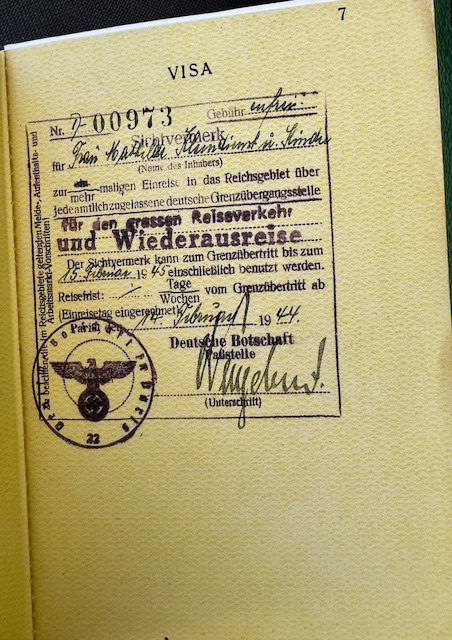 7
VISA
Nr. D 00973 Gebühr
Sichtvermerk
für Frau Mathilde u. Kinder
(Name des Inhabers)
zur ein- maligen Einreise in das Reichsgebiet über
mehr
jede amtlich zugelassene deutsche Grenzübergangsstelle
für den grossen Reiseverkehr
und Wiederausreise
Der Sichtvermerk kann zum Grenzübertritt bis zum
15. Februar 1945 einschließlich benutzt werden.
Reisefrist: ./. Tage
Wochen vom Grenzübertritt ab
(Einreisetag eingerechnet)
Paris, den Februar 1944.
Deutsche Botschaft
Paßstelle
(Unterschrift)
Deutsche Botschaft in Paris
22
Es ist zu beachten die im Reichsgebiet geltenden Melde-, Aufenthalts- und
Arbeitsmarkt-Vorschriften!